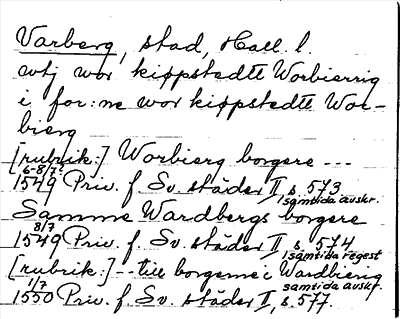 Varberg, stad, Hall. l.
wtj wor kiøpstedtt Worbierrig
i for:ne wor kiøpstedtt Wor-
bierg
[rubrik:] Worbierg borgere ---
6-8/7
1549 Priv. f. Sv. städer II s. 573
samtida avskr.
Samme Wardbergs borgere
8/7
1549 Priv. f. Sv. städer II s. 574
samtida regest
[rubrik:] -- till borgerne i Wardbierig
1/7
samtida avskr.
1550 Priv. f. Sv. städer II, s. 577.